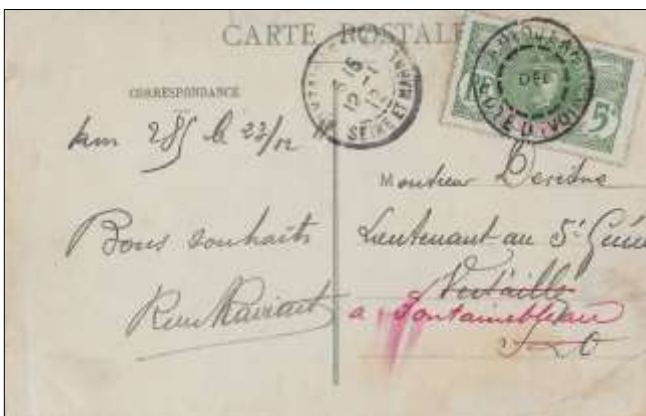 CARTE POSTALE
CORRESPONDANCE
km 285 le 23/12
Bons souhaits
SEINE ET MARNE
DEC
CÔTE D'IVOIRE
5
Monsieur
Lieutenant au 5e Génie
Versailles
a Fontainebleau